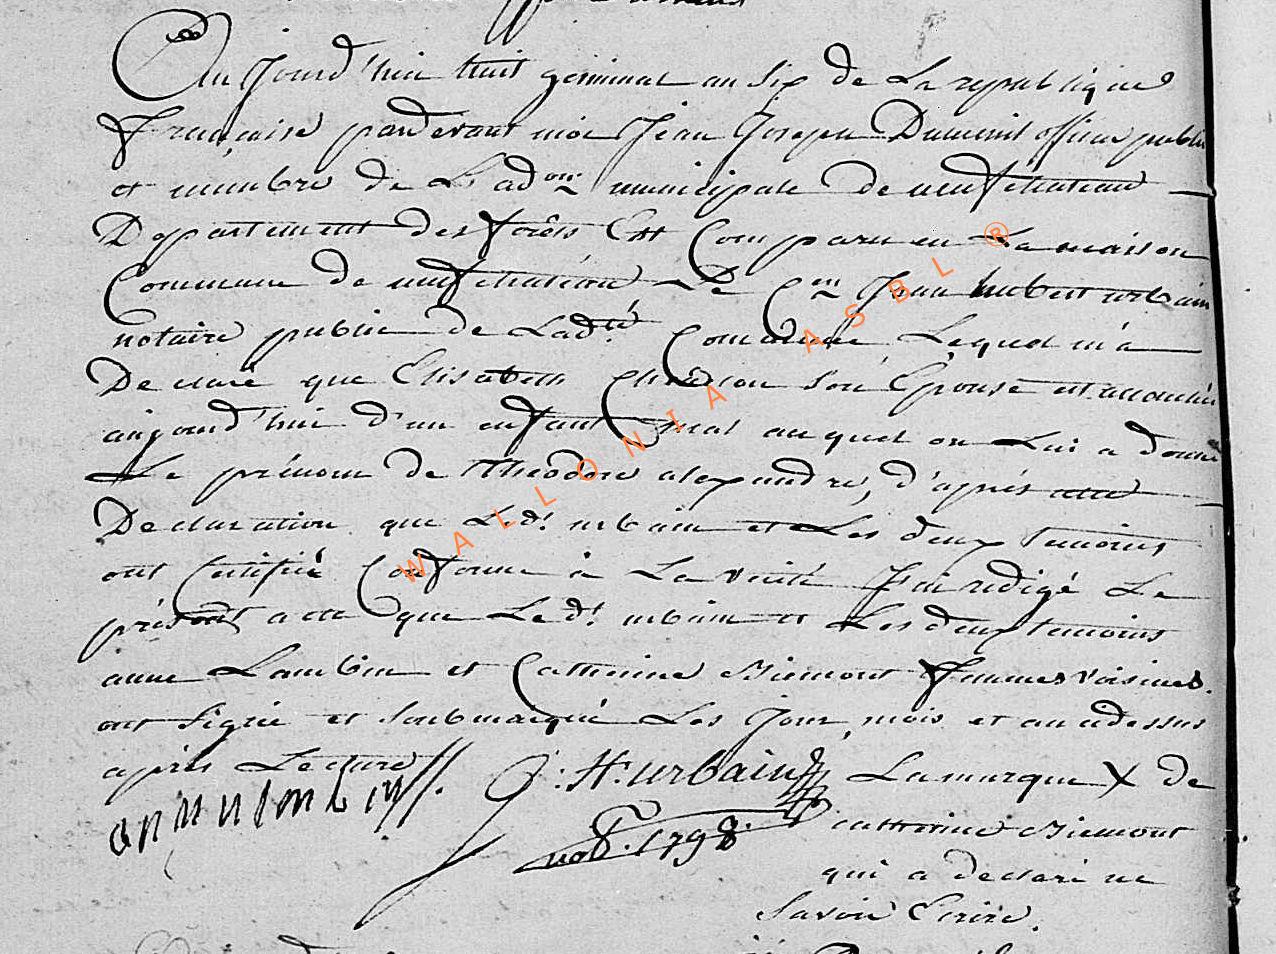 Aujourd'hui huit germinal an six de La republique
française pardevant moi Jean Joseph Dumenil officier public
et membre de L'adon municipale de neufchateau
Departement des forêts Est Comparu en La maison
Commune de neufchateau Le Cen Jean hubert urbain
notaire public de Ladte Commune Lequel m'a
Declaré que Elisabeth son Epouse est accouchée
aujourd'hui d'un enfant mal auquel on Lui a donné
Le prénom de théodore alexandre, d'après cette
Declaration que Led! urbain et Les deux temoins
ont Certifié Conforme à La verité J'ai redigé Le
présent acte que Led! urbain et Les deux temoins
anne Lambin et Catherine Riemont femmes voisines.
ont signé et soubmarqué Les Jour, mois et an cidessus
après Lecture
annulambin J: H: urbain La marque X de
not. 1798. catherine Riemont
qui a declaré ne
Savoir Ecrire.
WALLONIA ASBL ®